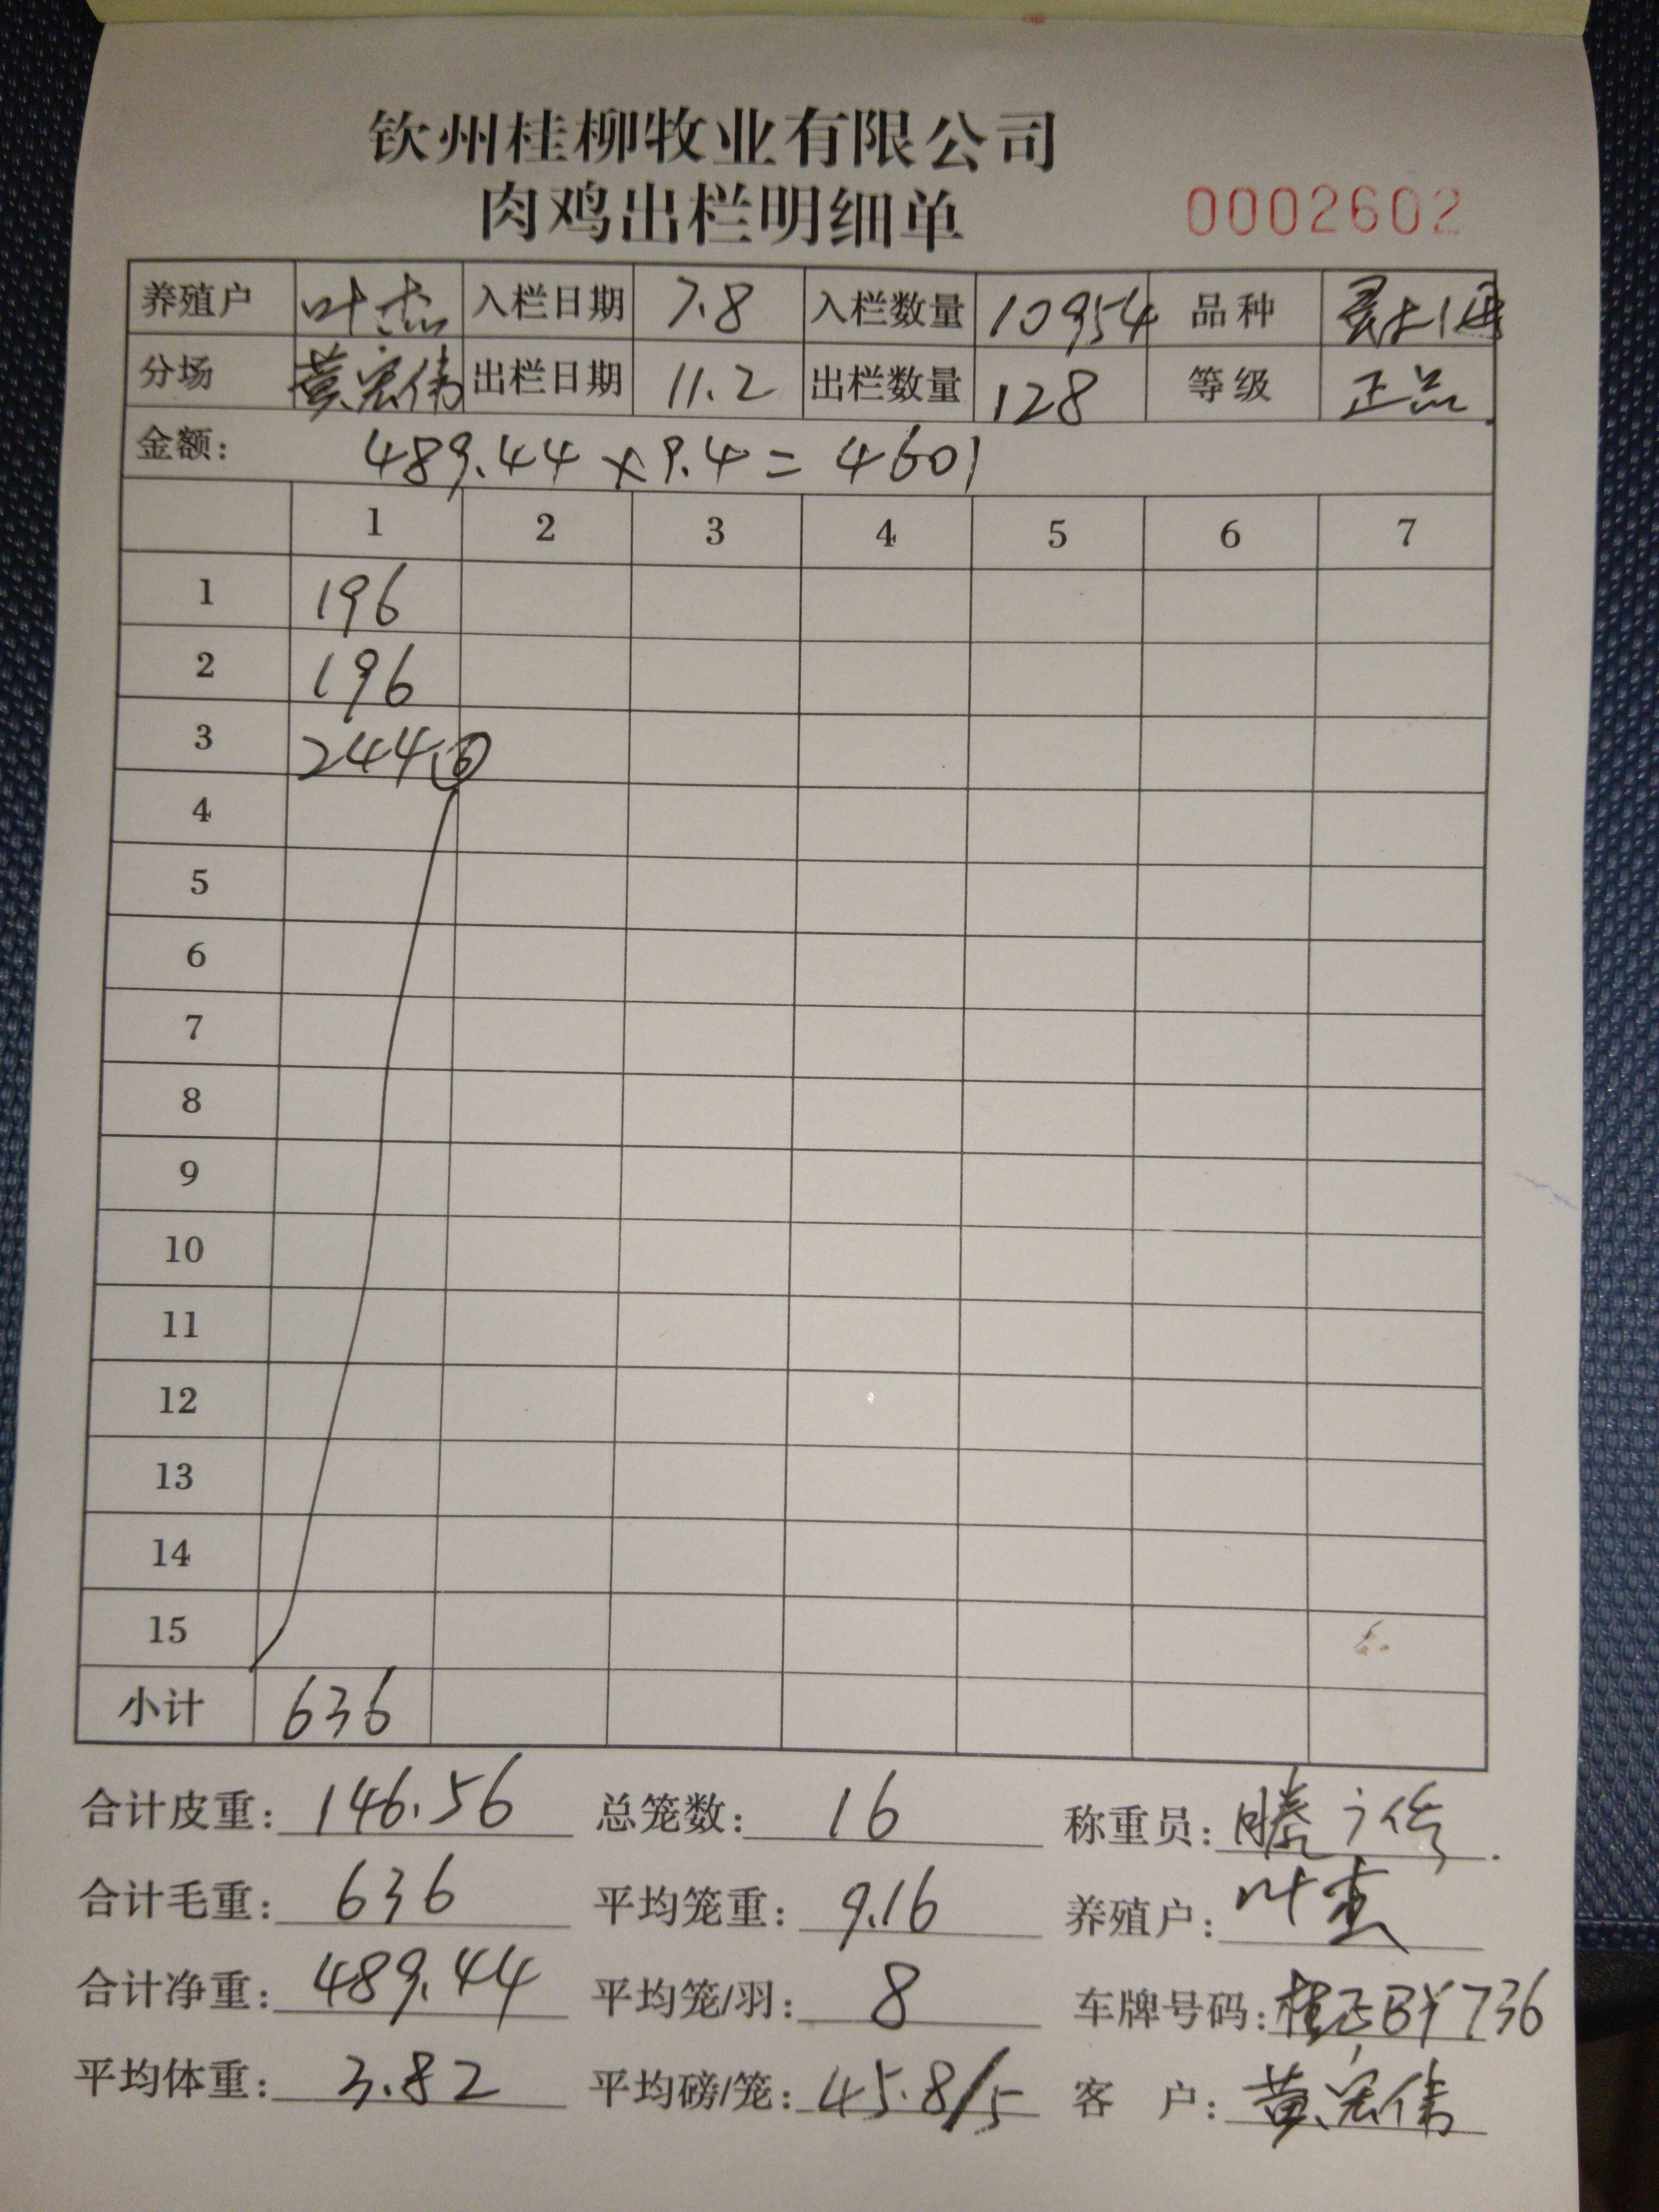 钦州桂柳牧业有限公司
肉鸡出栏明细单 0002602
养殖户 叶杰 入栏日期 7.8 入栏数量 10954 品种
分场 黄宏伟 出栏日期 11.2 出栏数量 128 等级 正品
金额: 489.44 × 9.4 = 4601
1 2 3 4 5 6 7
1 196
2 196
3 244⑥
4
5
6
7
8
9
10
11
12
13
14
15
小计 636
合计皮重: 146.56 总笼数: 16 称重员:
合计毛重: 636 平均笼重: 9.16 养殖户: 叶杰
合计净重: 489.44 平均笼/羽: 8 车牌号码: 736
平均体重: 3.82 平均磅/笼: 45.8/5 客户: 黄宏伟